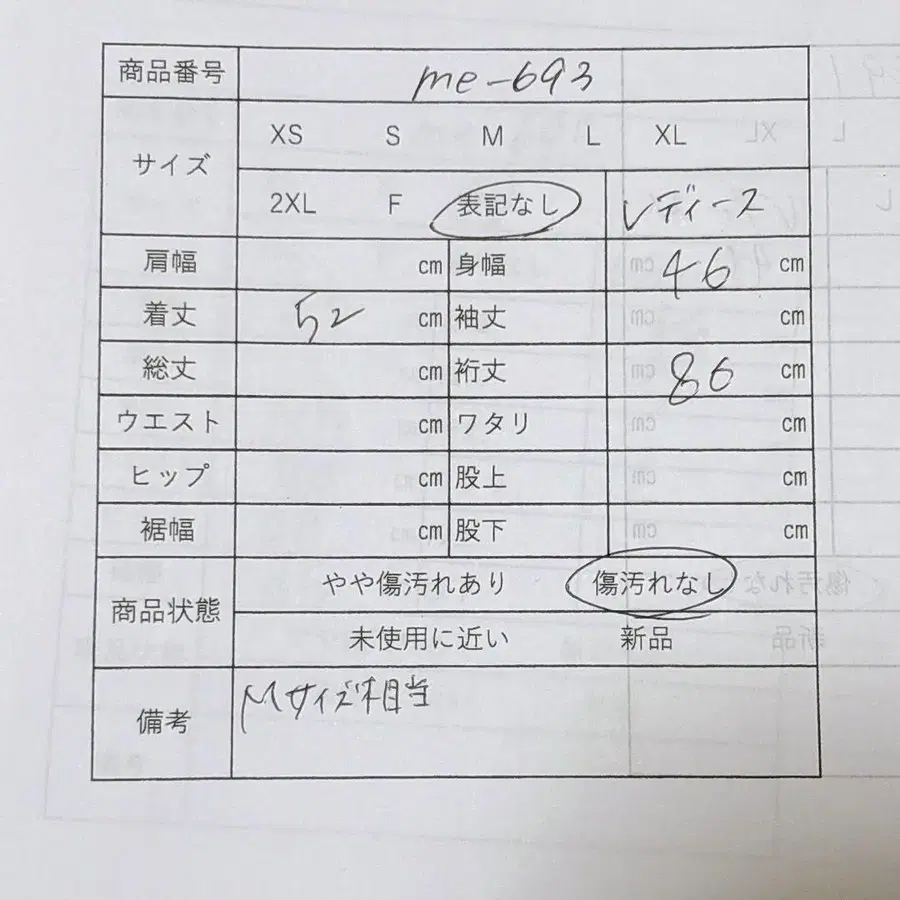 商品番号 me-693
サイズ XS S M L XL
2XL F 表記なし レディース
肩幅 cm 身幅 46 cm
着丈 52 cm 袖丈 cm
総丈 cm 裄丈 86 cm
ウエスト cm ワタリ cm
ヒップ cm 股上 cm
裾幅 cm 股下 cm
商品状態 やや傷汚れあり 傷汚れなし
未使用に近い 新品
備考 Mサイズ相当